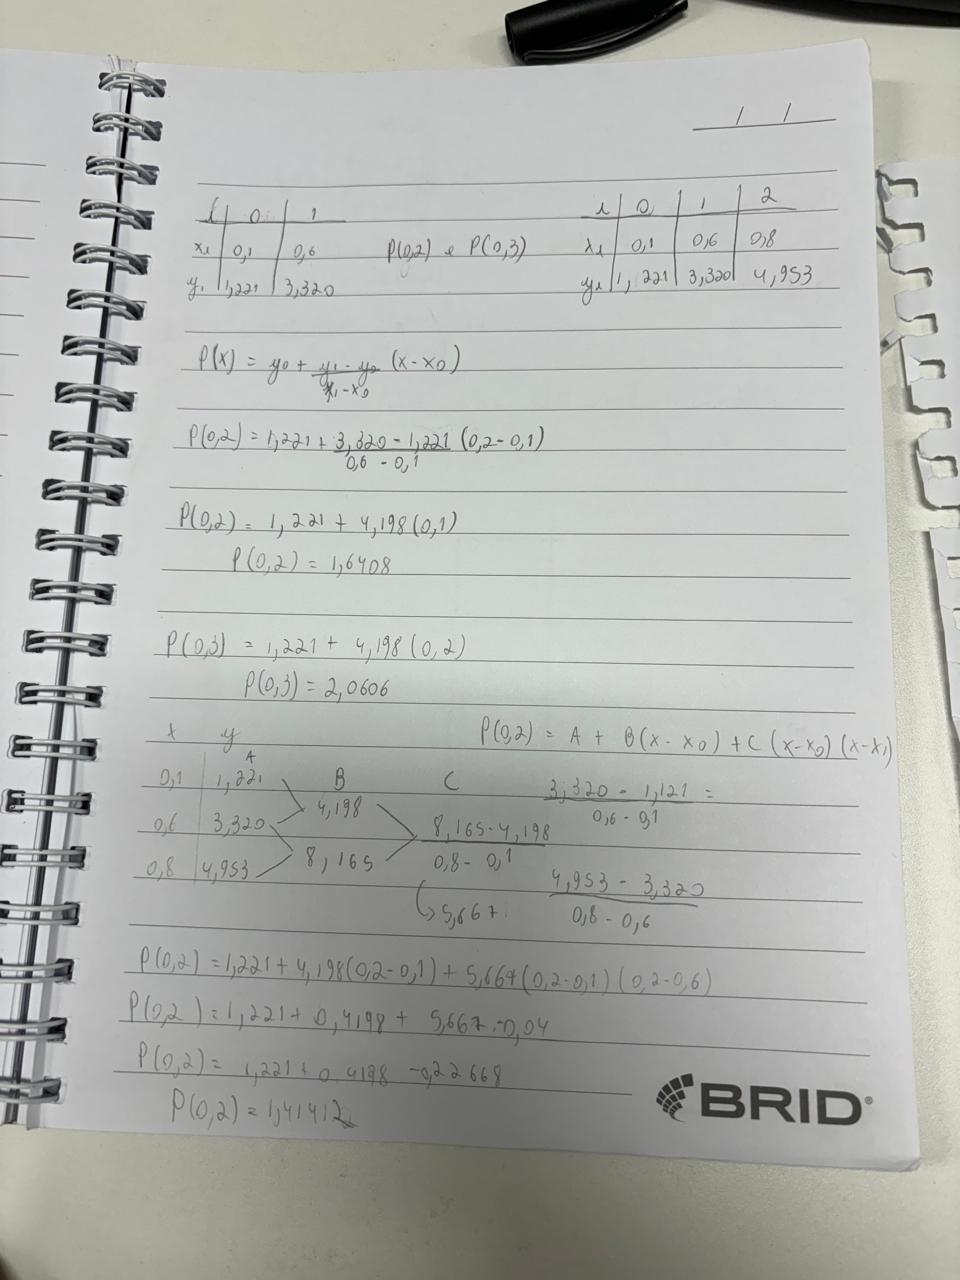 / /
i 0 1
xi 0,1 0,6
yi 1,221 3,320
P(0,2) e P(0,3)
i 0 1 2
xi 0,1 0,6 0,8
yi 1,221 3,320 4,953
P(x) = y0 + y1 - y0 (x - x0)
x1 - x0
P(0,2) = 1,221 + 3,320 - 1,221 (0,2 - 0,1)
0,6 - 0,1
P(0,2) = 1,221 + 4,198 (0,1)
P(0,2) = 1,6408
P(0,3) = 1,221 + 4,198 (0,2)
P(0,3) = 2,0606
P(0,2) = A + B(x - x0) + C (x-x0) (x-x1)
x y
A B C
0,1 1,221
4,198
0,6 3,320
8,165
0,8 4,953
8,165 - 4,198
0,8 - 0,1
5,667
3,320 - 1,121 =
0,6 - 0,1
4,953 - 3,320
0,8 - 0,6
P(0,2) = 1,221 + 4,198(0,2-0,1) + 5,667(0,2-0,1) (0,2-0,6)
P(0,2) = 1,221 + 0,4198 + 5,667 . -0,04
P(0,2) = 1,221 + 0,4198 - 0,22668
P(0,2) = 1,41412
BRID®